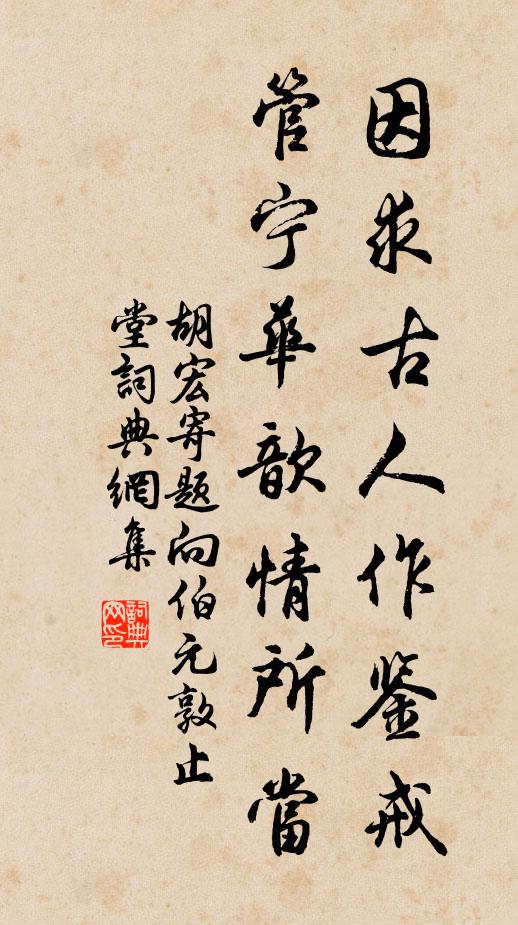 因求古人作鉴戒
管宁华歆情所當
胡宏寄题向伯元敦止
堂詞典網集
詞典
网印